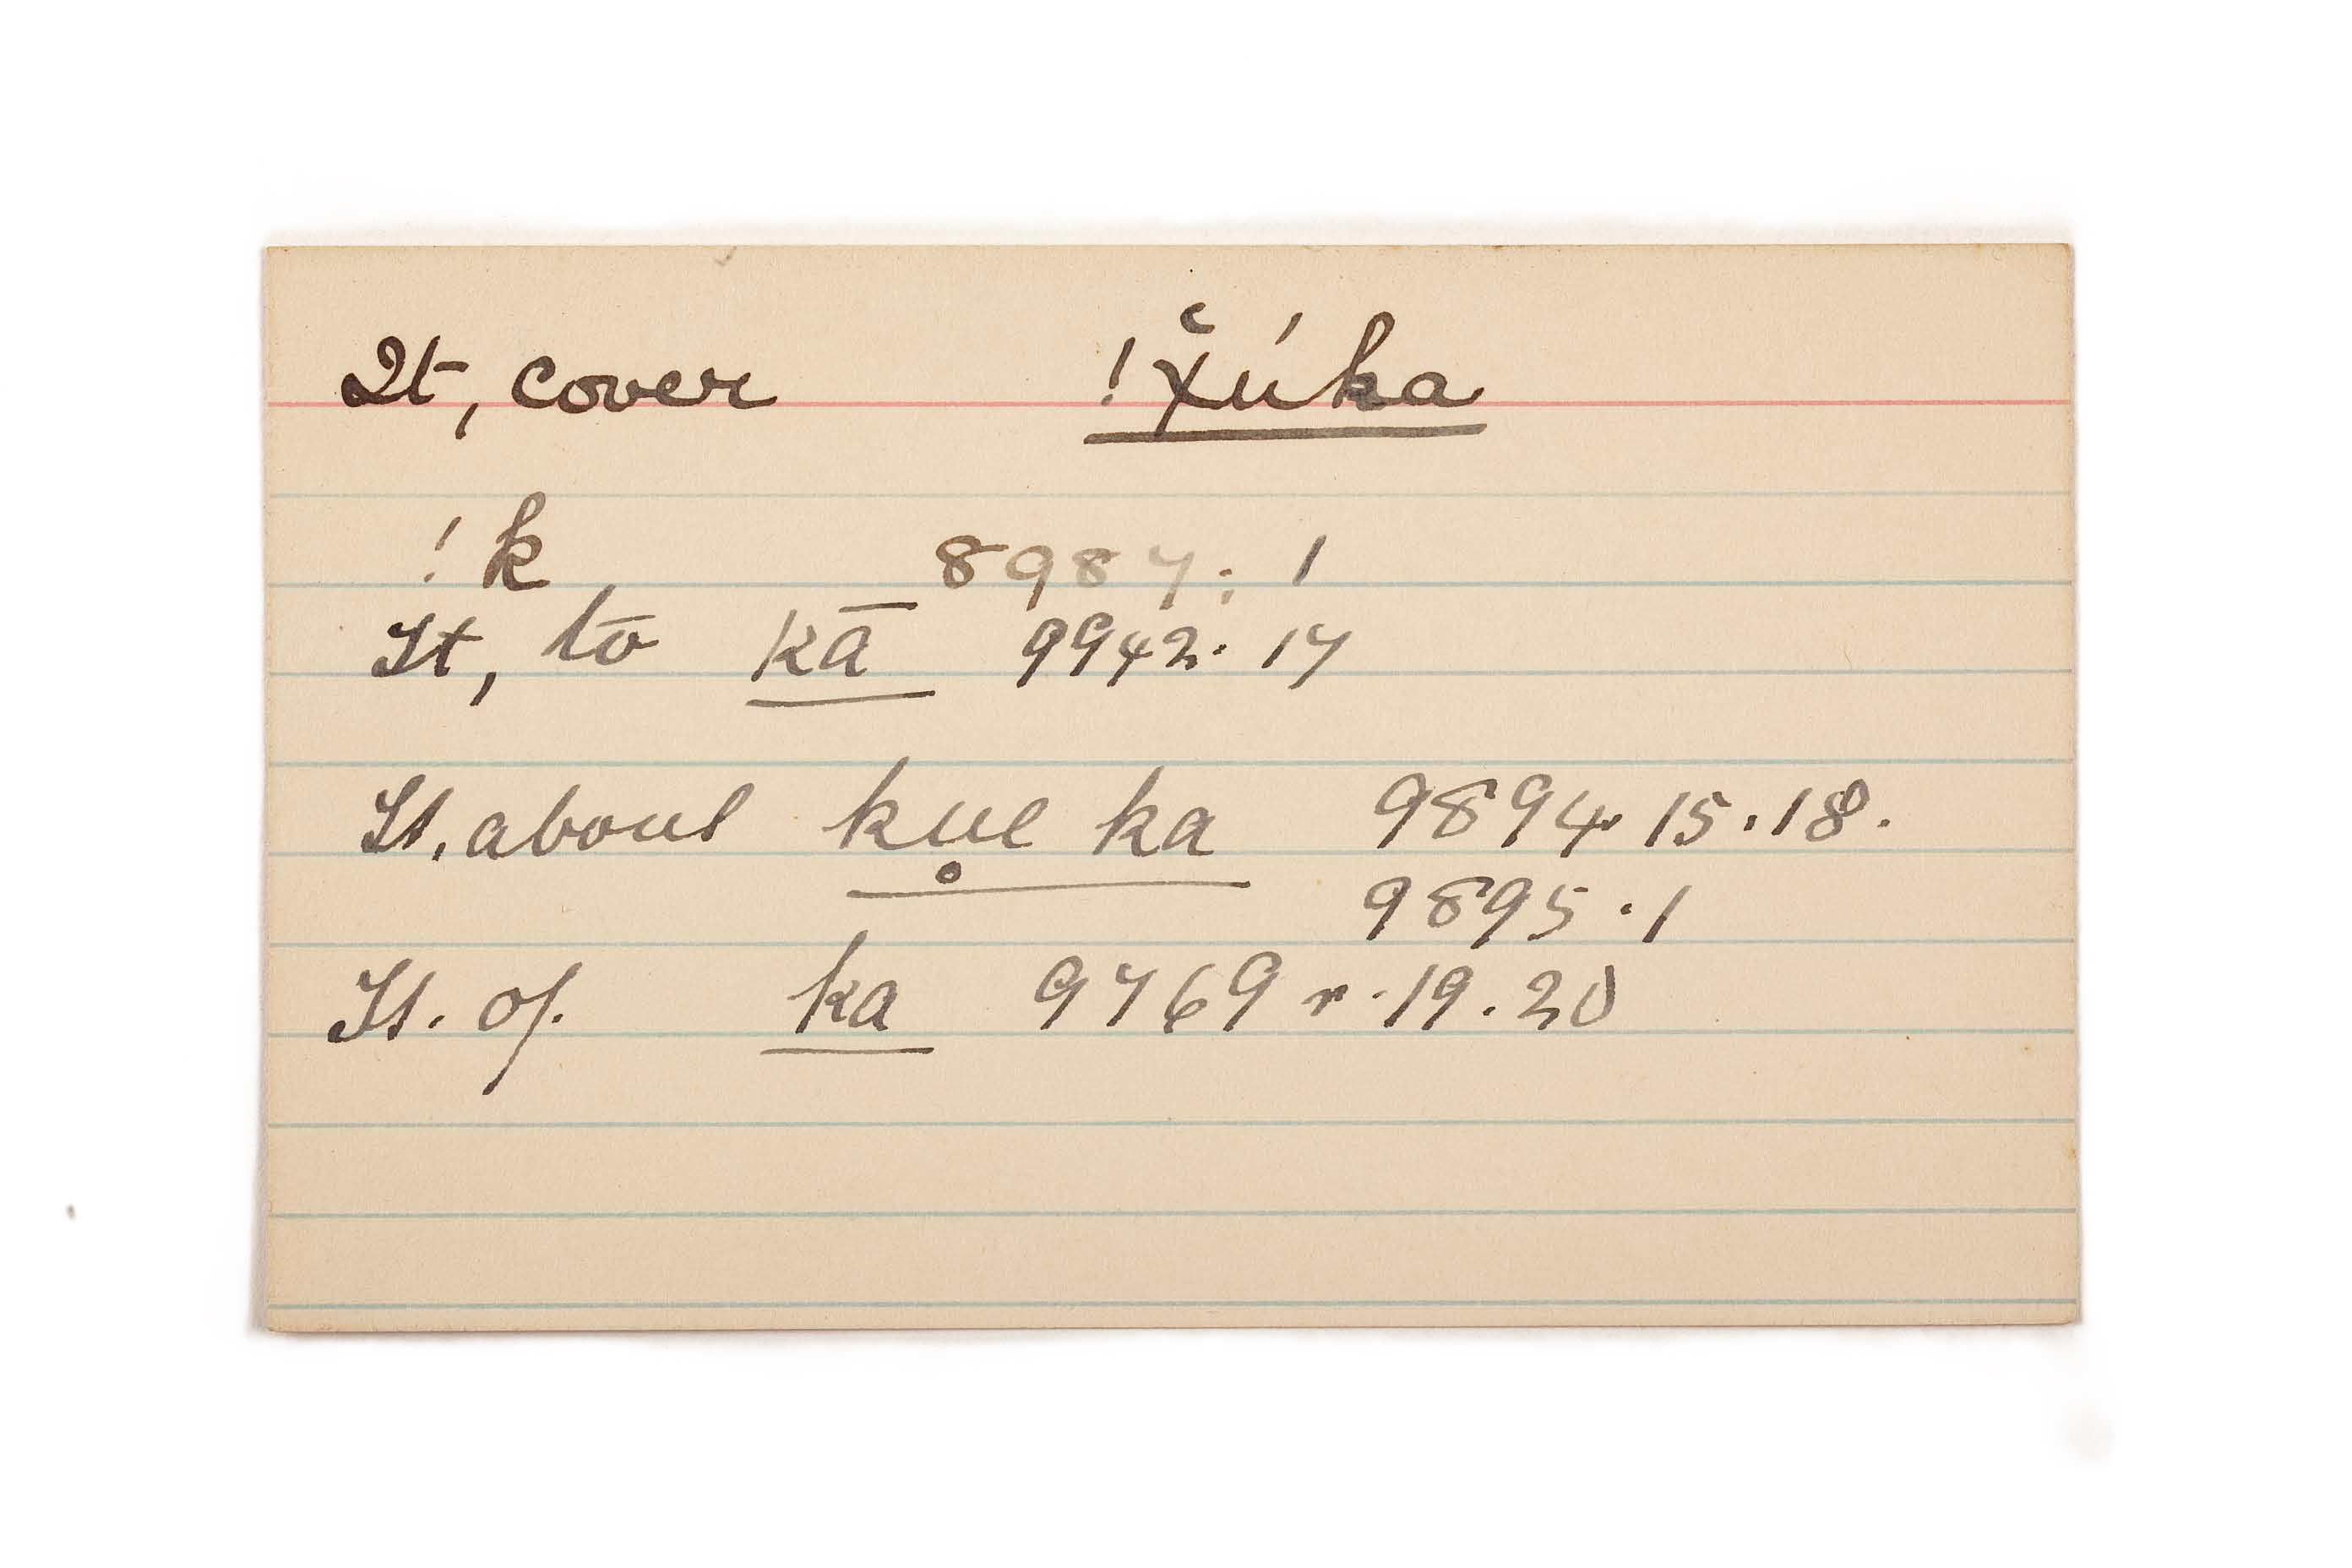 It, cover !x̆úka
!k 8987: 1
It, to kā 9942. 17
It. about ku̥e ka 9894. 15. 18.
9895. 1
It. of. ka 9769 r. 19. 20